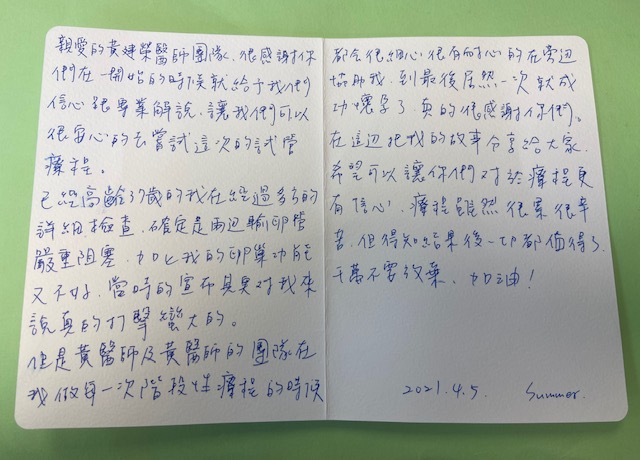 親愛的黃建榮醫師團隊、很感謝你
們在一開始的時候就給予我們
信心跟專業解說、讓我們可以
很安心的去嘗試這次的試管
療程。
已經高齡37歲的我在經過多方的
詳細檢查、確定是兩邊輸卵管
嚴重阻塞、加上我的卵巢功能
又不好、當時的宣布其實對我來
說真的打擊蠻大的。
但是黃醫師及黃醫師的團隊在
我做每一次階段性療程的時候
都會很細心很有耐心的在旁邊
協助我、到最後居然一次就成
功懷孕了、真的很感謝你們。
在這邊把我的故事分享給大家、
希望可以讓你們對於療程更
有信心、療程雖然很累很辛
苦、但得知結果後一切都值得了、
千萬不要放棄、加油！
2021.4.5. Summer.